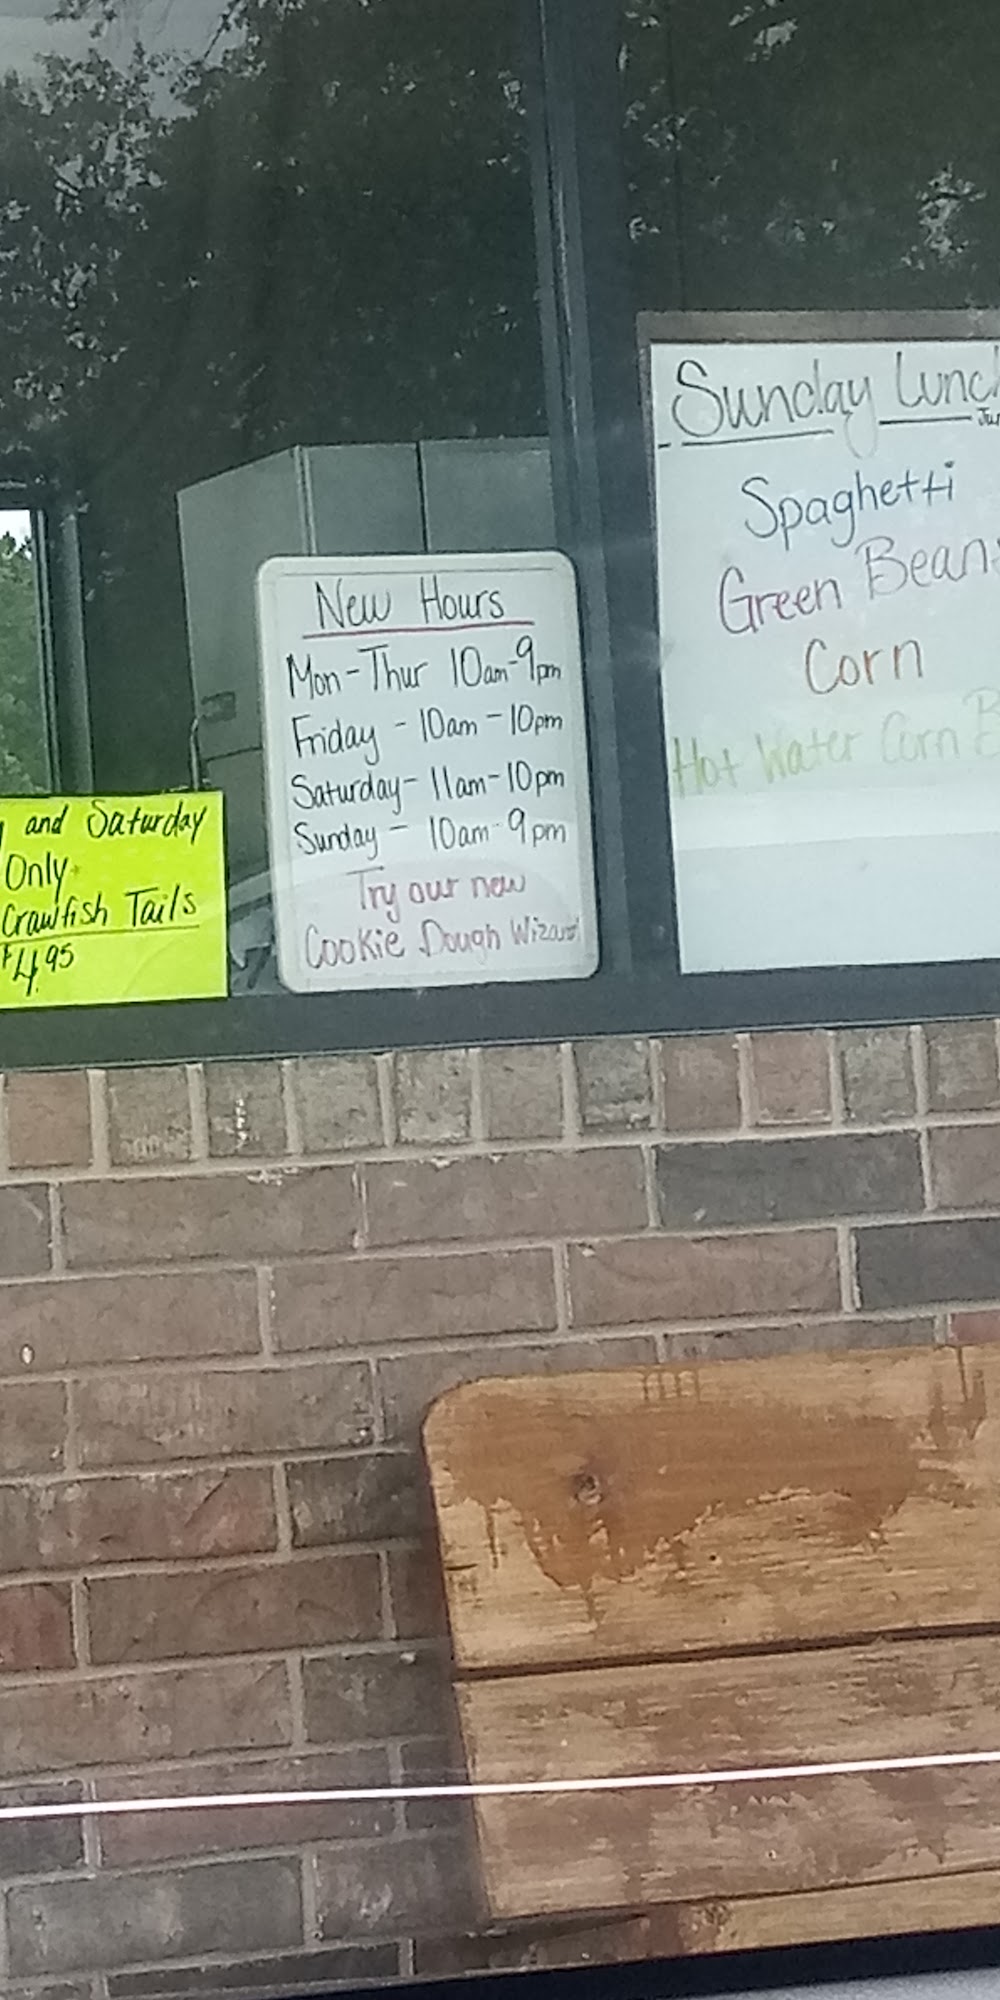 and Saturday
Only
Crawfish Tails
$4.95
New Hours
Mon-Thur 10am-9pm
Friday - 10am - 10pm
Saturday- 11am-10pm
Sunday - 10am-9pm
Try our new
Cookie Dough Wizard
Sunday Lunch
Spaghetti
Green Beans
Corn
Hot Water Corn